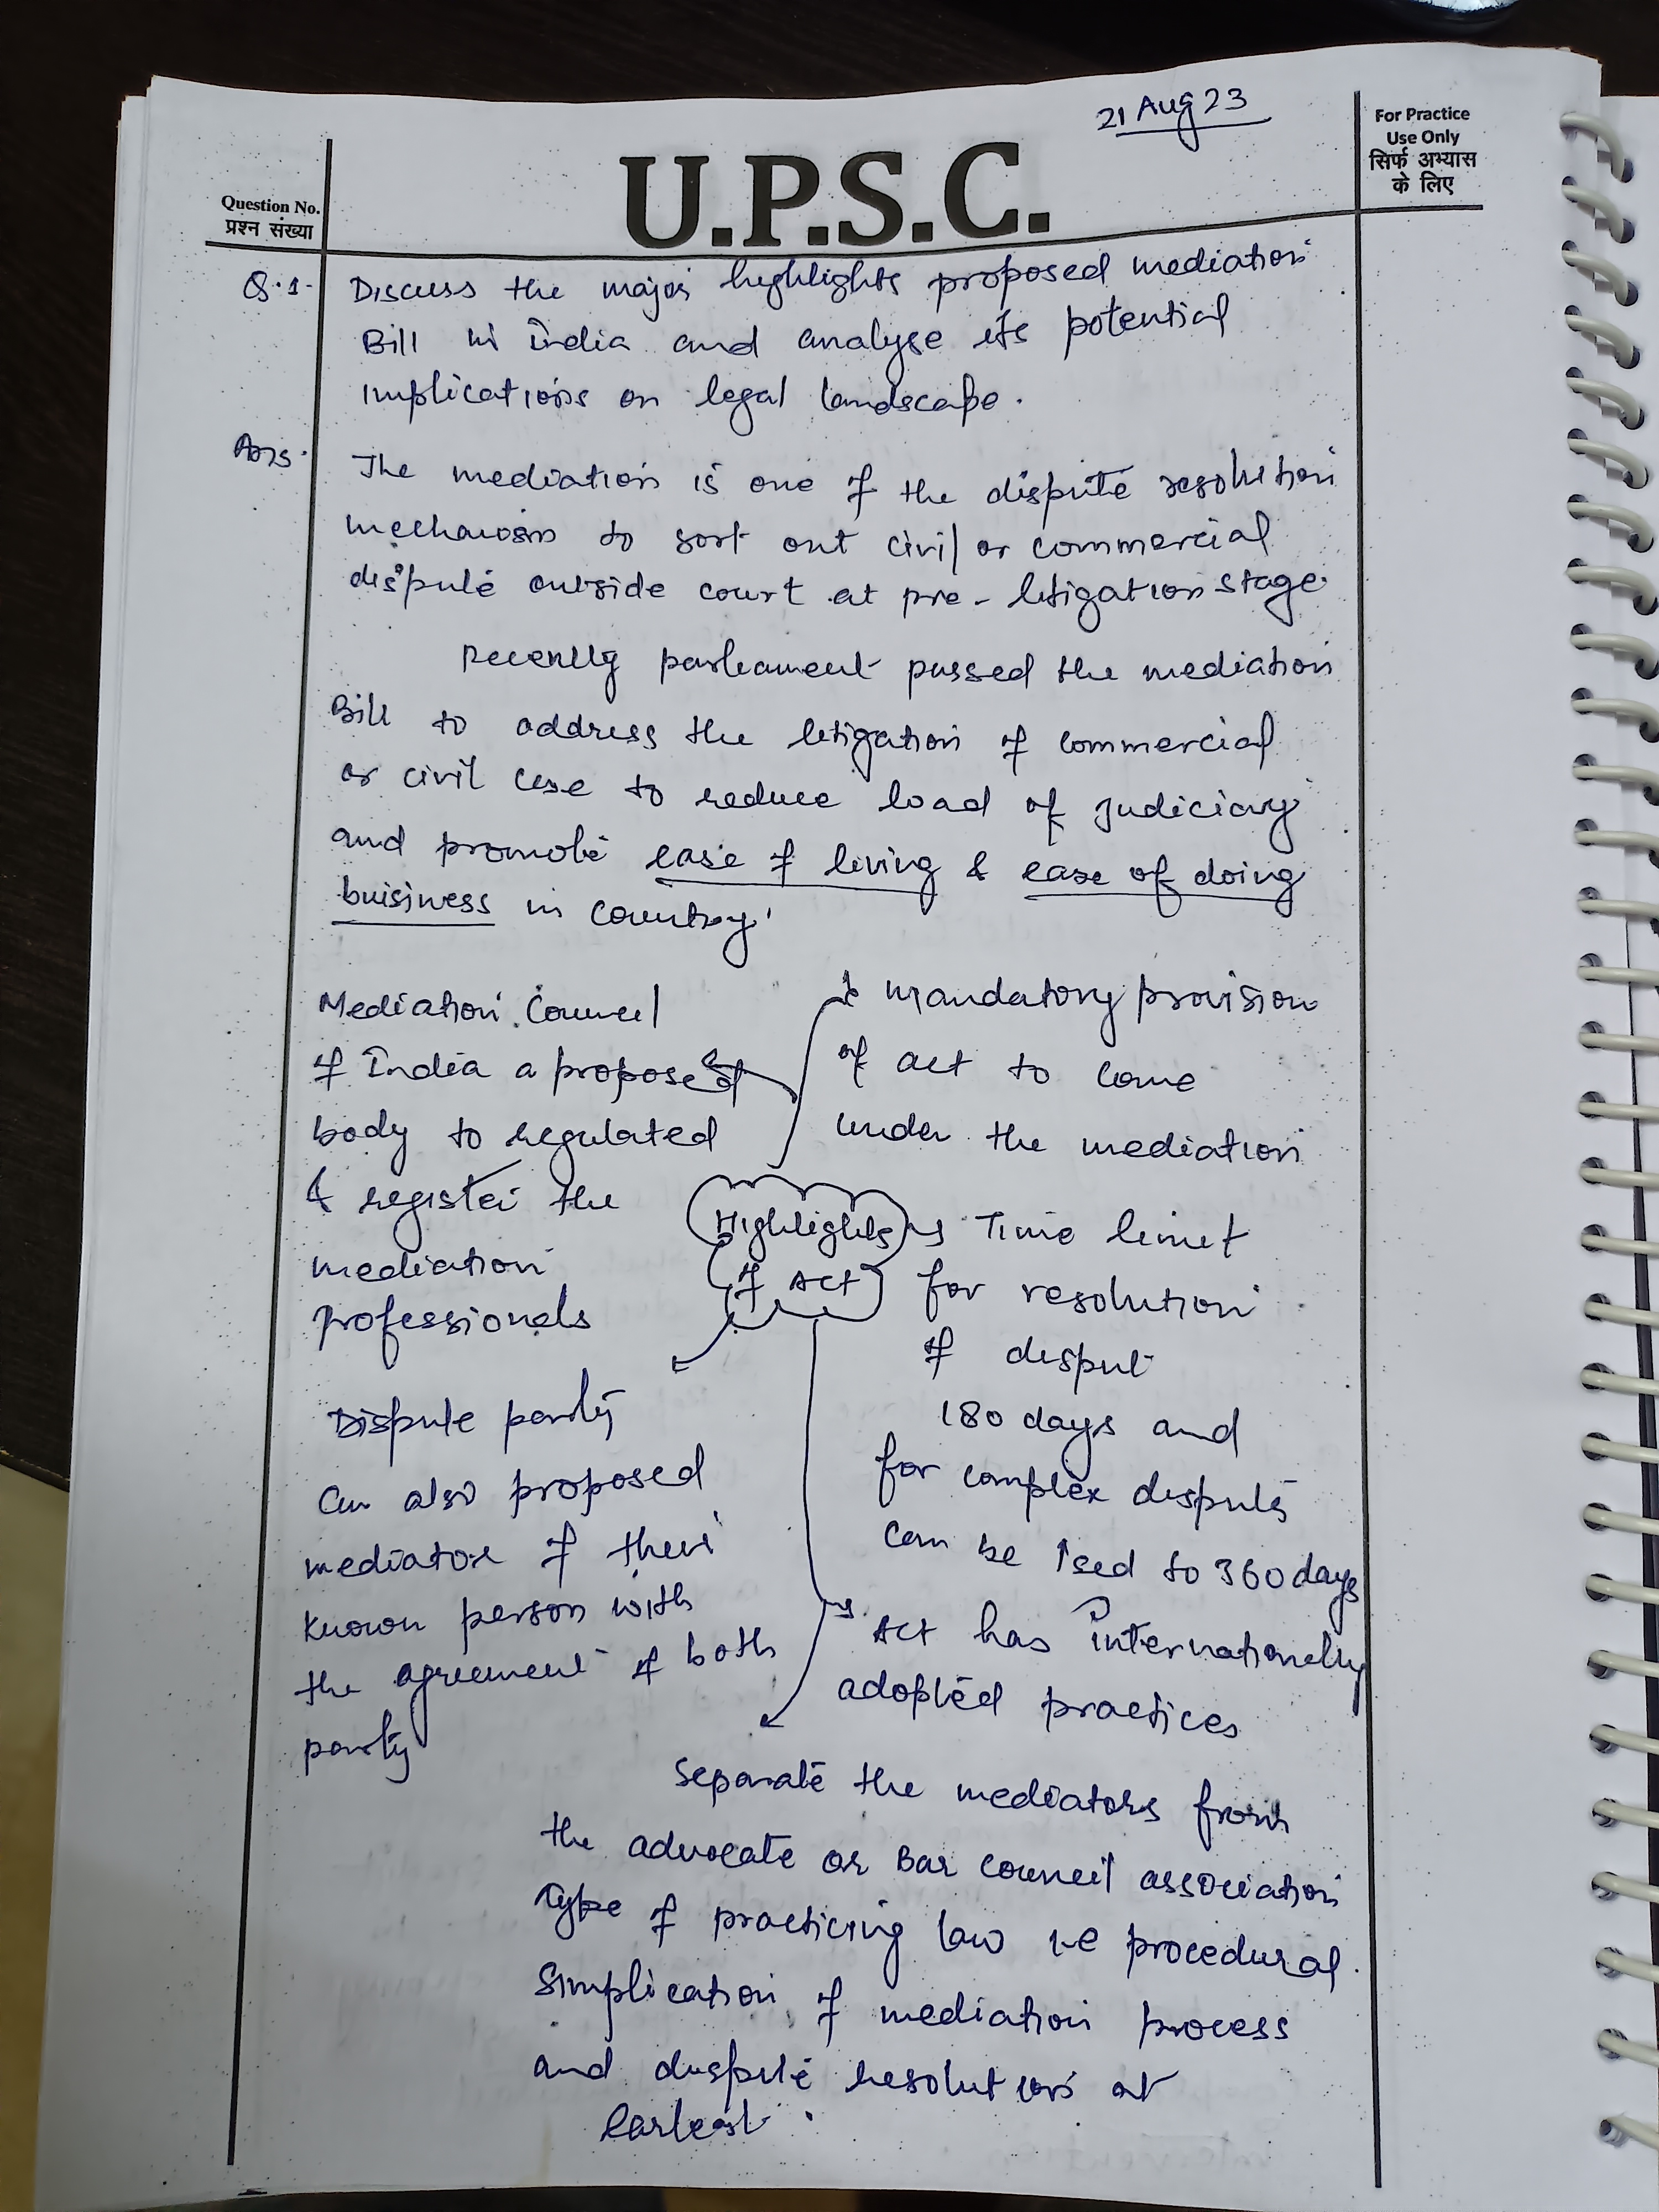 21 Aug 23
For Practice
Use Only
सिर्फ अभ्यास
के लिए
Question No.
प्रश्न संख्या
U.P.S.C.
Q.1- Discuss the major highlights proposed mediation
Bill in India and analyse its potential
implications on legal landscape.
Ans. The mediation is one of the dispute resolution
mechanism to sort out civil or commercial
dispute outside court at pre-litigation stage.
Recently parliament passed the mediation
Bill to address the litigation of commercial
or civil case to reduce load of judiciary
and promote ease of living & ease of doing
buisiness in country.
Mediation Council
of India a proposed
body to regulated
& register the
mediation
professionals
mandatory provision
of act to come
under the mediation
Highlights
of Act
Time limit
for resolution
of disput
180 days and
for complex dispute
can be ↑sed to 360 days
Dispute party
can also proposed
mediator of their
known person with
the agreement of both
party
Act has internationally
adopted practices
Separate the mediators from
the advocate or Bar council association
type of practicing law i.e procedural
simplication of mediation process
and dispute resolution at
earliest.